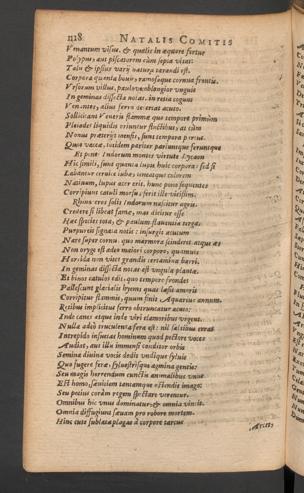 1128 NATALIS COMITIS
Venantum visus, & qualis in æquore fertur
Polypus, aut piscatorem cùm sepia vitat:
Talis & ipsius varij natura tarandi est.
Corpora quanta boui, ramosaque cornua frontis.
Vrsorum villus, paulo
In geminas dissecta notas, in retia cogunt
Venantes, alius ferro
Sollicitant Veneris flammæ quo tempore primùm
Pleiades liquidis oriuntur fluctibus, at cùm
Nonus præterijt mensis, sunt tempora partus.
Quot vaccæ, totidem pariter pariuntque feruntque
Hic similis, sunt quanta lupis huic corpora: sed si
Labantur ceruice iubæ, iumenque colorem
Natiuum, lupus acer erit, hunc pone sequentes
Corripiunt catuli morsu, ferit ille vicissim.
soles Indorum nascitur agris.
Credere si libeat famæ, mas dicitur esse
Hæc species tota, & paulum flauentia terga:
Purpureis signata notis: insurgit acutum
Nare super cornu, quo marmora scinderet atque æs
Non oryge est adeo maior corpore, quamuis
Horrida non vitet grandis certamina barri.
In geminas dissecta notas est vngula plantæ.
Et binos catulos edit, quo tempore frondes
Pallescunt glacialis hyems quas læsit amaris
Corripitur flammis, quum finit Aquarius annum.
Retibus implicitus ferro obtruncatur acuto:
Inde canes atque inde viri clamoribus vrgent.
Nulla adeò truculenta fera est: nil saltibus errat
Intrepido insuetas hominem quod pectore voces
Audiat, aut illis immensi conditor orbis
Semina diuinæ vocis dedit vndique syluis
Quo fugere feræ, syluestriaque agmina gentis:
Seu magis horrendum cunctis animalibus vnus
Est homo, sæuitiem tantamque ostendit imago:
Seu potius coràm regem spectare verentur.
Omnibus hic vnus dominatur, & omnia vincit.
Omnia diffugiunt sæuam pro robore mortem.
Hinc cute sublata plagas è corpore tarcus